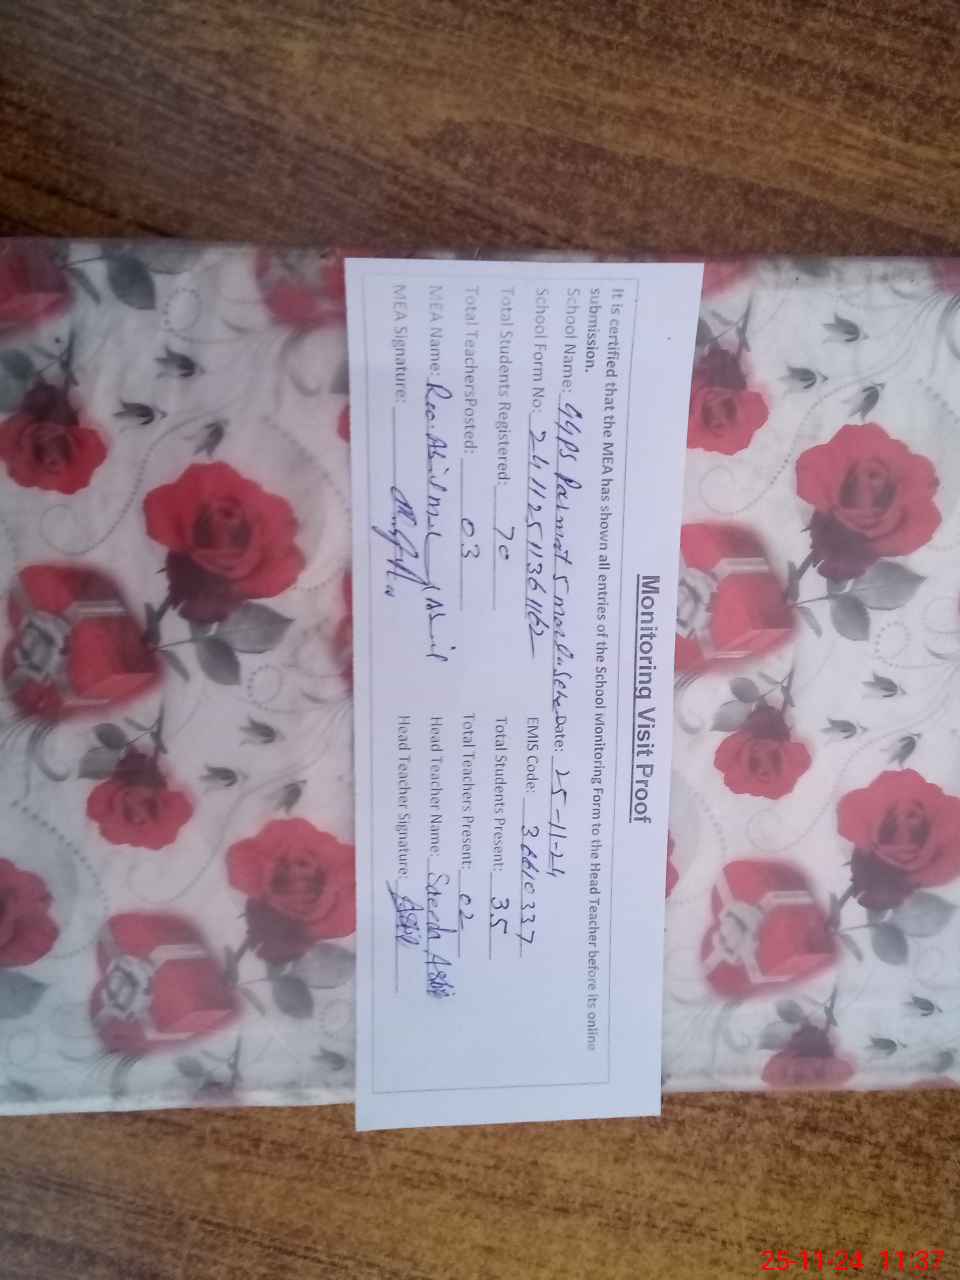 Monitoring Visit Proof
It is certified that the MEA has shown all entries of the School Monitoring Form to the Head Teacher before its online
submission.
School Name: GGPS Date: 25-11-24
School Form No: 24112511361162 EMIS Code: 36610337
Total Students Registered: 70 Total Students Present: 35
Total TeachersPosted: 03 Total Teachers Present: 02
MEA Name: Head Teacher Name:
MEA Signature: Head Teacher Signature:
25-11-24 11:37